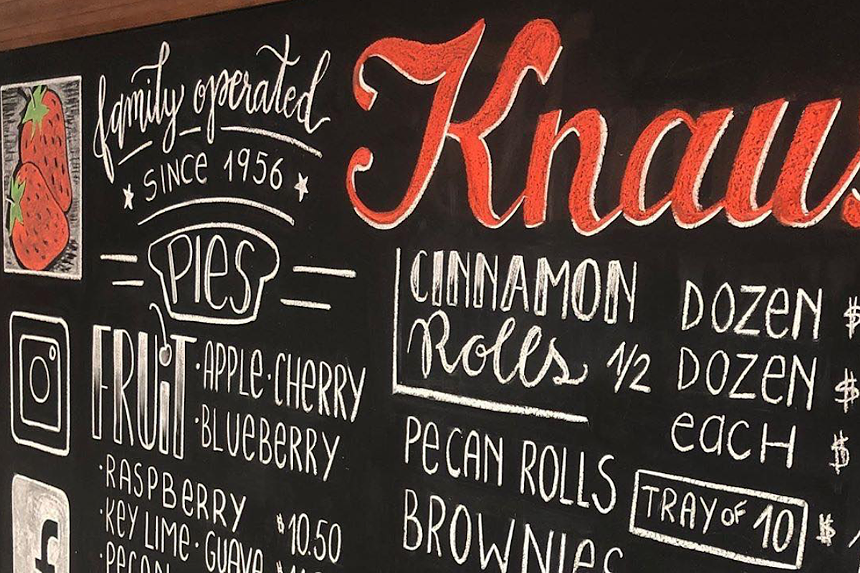 family operated
SINCE 1956
PIES
FRUIT
·APPLE·CHERRY
·BLUEBERRY
·RASPBERRY
·KEY LIME·GUAVA
$10.50
·PECAN
Knaus
CINNAMON
Rolls
DOZEN $
1/2 DOZEN $
eacH $
PECAN ROLLS
TRAY OF 10 $
BROWNIES
f